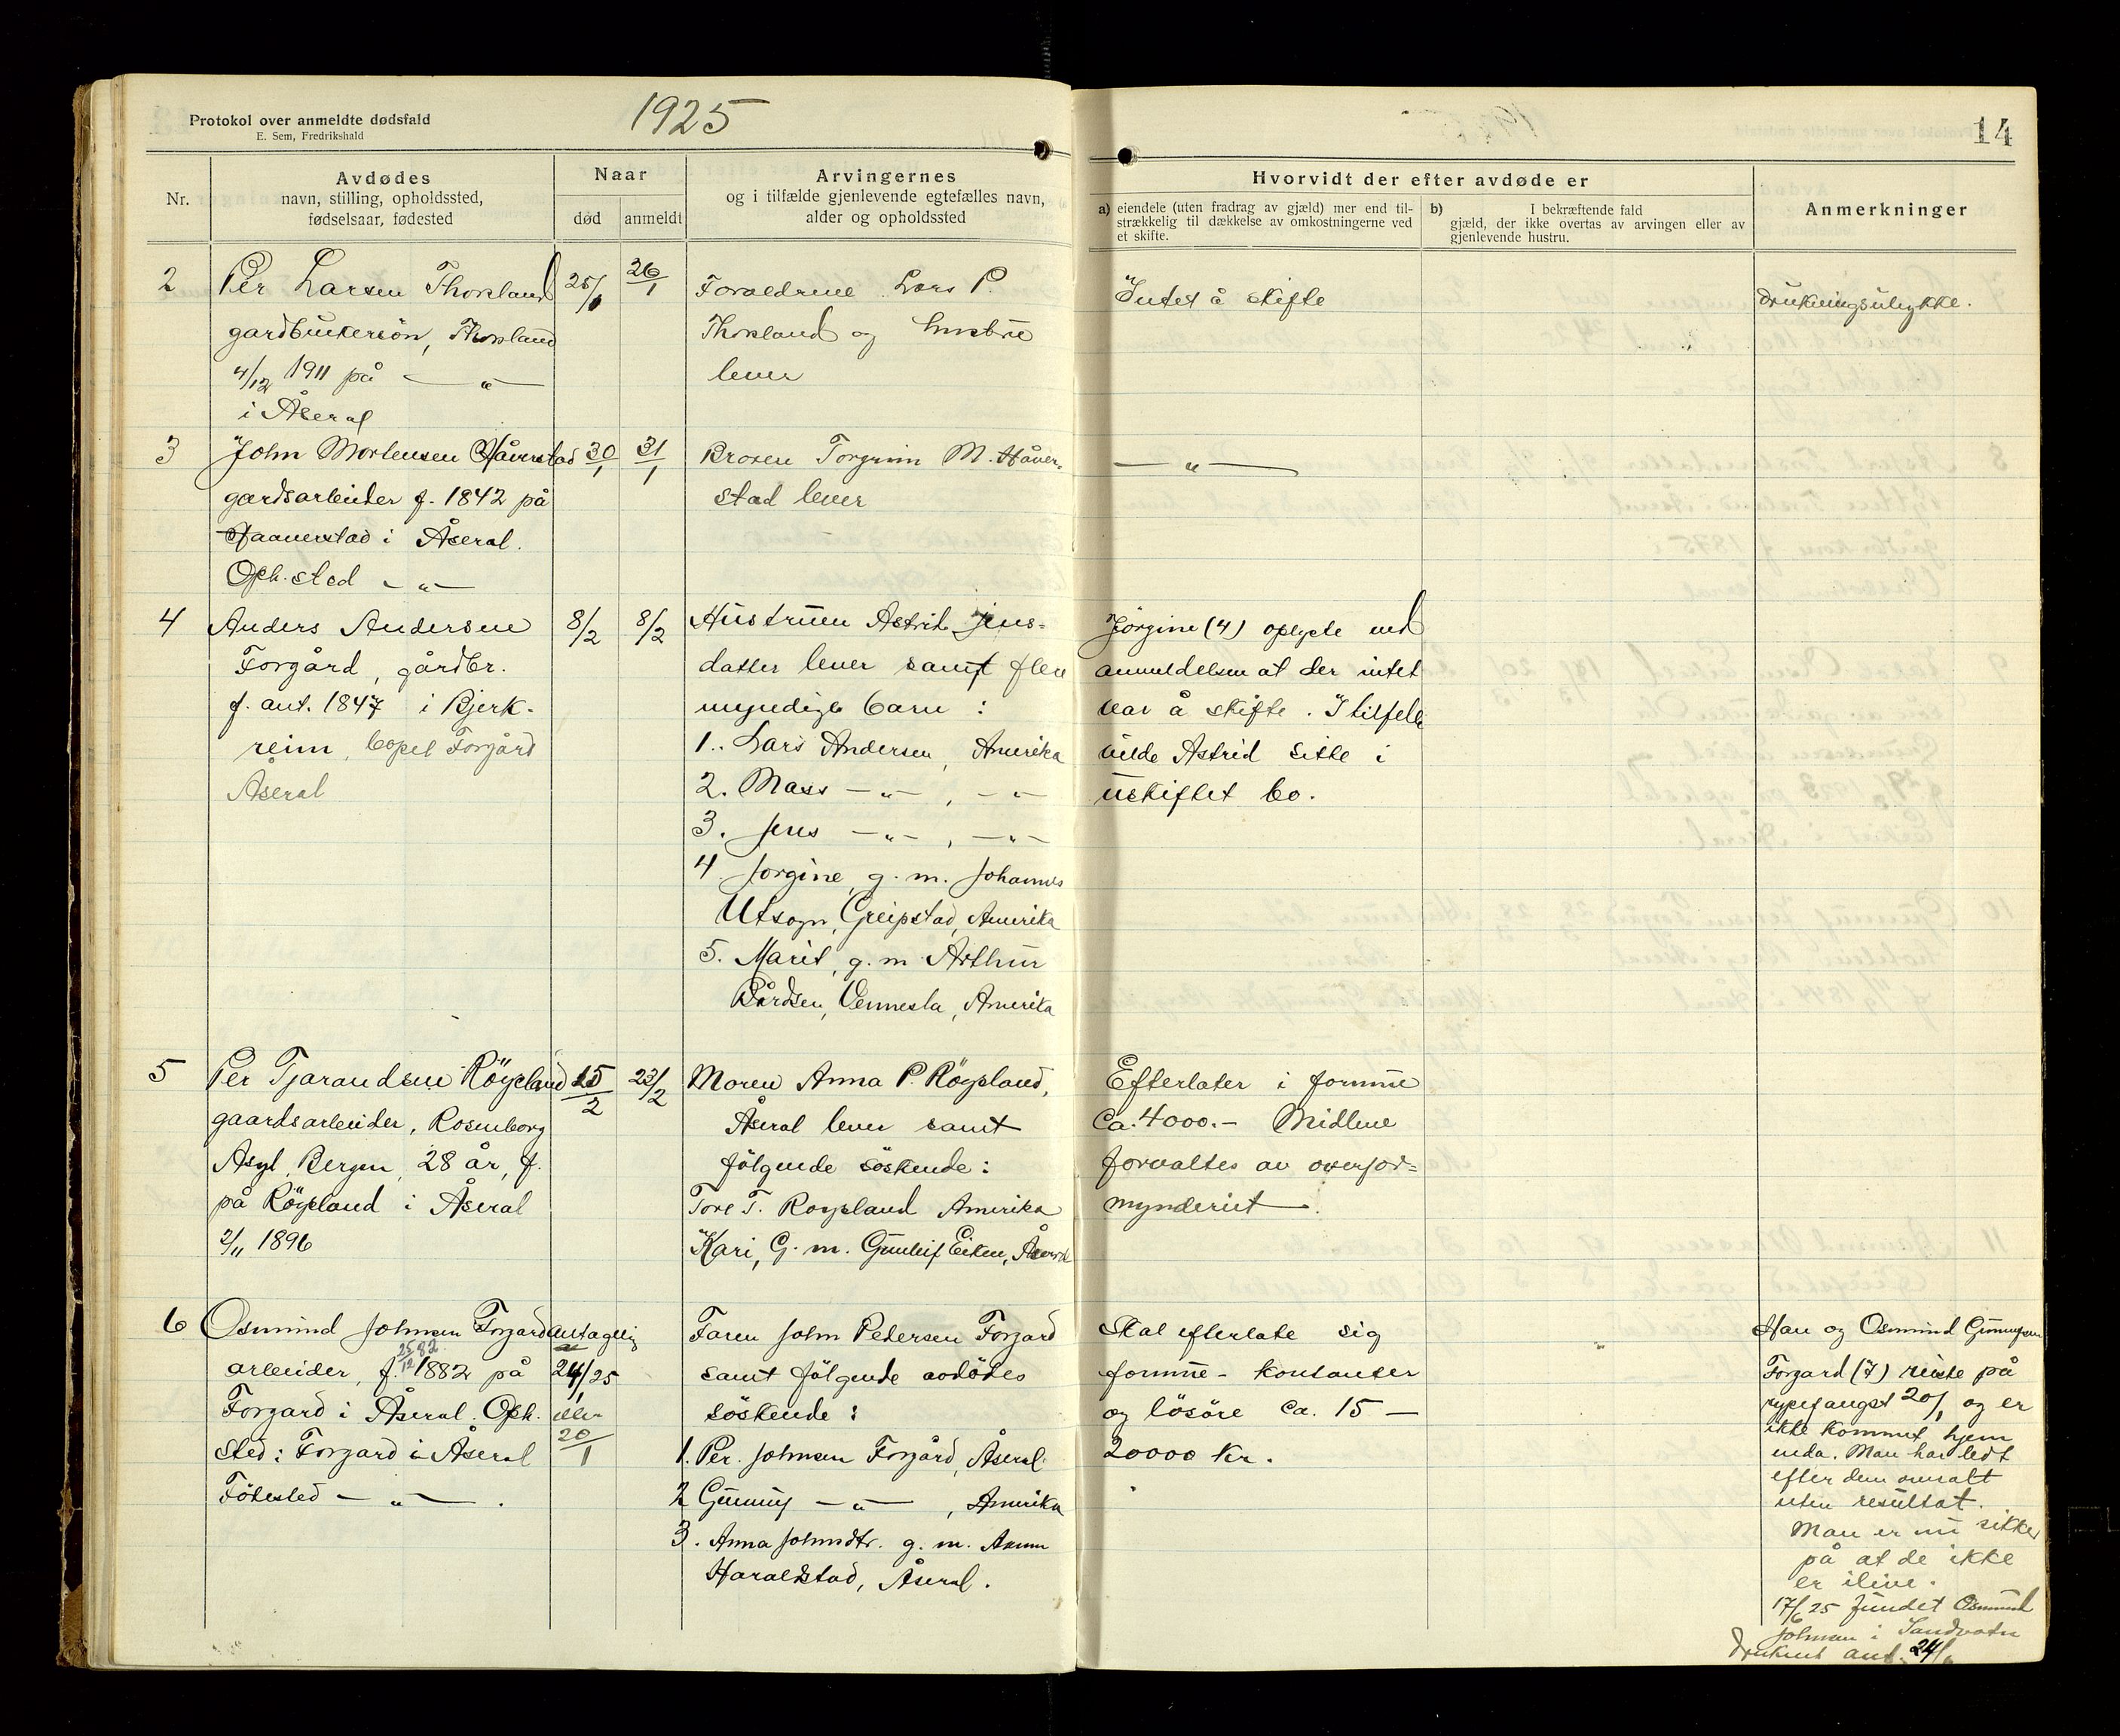 Protokol over anmeldte dødsfald
E. Sem, Fredrikshald
1925
14
Nr.
Avdødes
navn, stilling, opholdssted,
fødselsaar, fødested
Naar
død
anmeldt
Arvingernes
og i tilfælde gjenlevende egtefælles navn,
alder og opholdssted
Hvorvidt der efter avdøde er
a) eiendele (uten fradrag av gjæld) mer end til-
strækkelig til dækkelse av omkostningerne ved
et skifte.
b) I bekræftende fald
gjæld, der ikke overtas av arvingen eller av
gjenlevende hustru.
Anmerkninger
2
Per Larsen Thorsland
gardbrukersön, Thorsland
4/12 1911 på — " —
i Åseral
25/1
26/1
Foraeldrene Lars P.
Thorsland og hustru
lever
Intet å skifte
Drukningsulykke.
3
John Mortensen Håverstad
gardsarbeider f. 1842 på
Haaverstad i Åseral.
Oph. sted — " —
30/1
31/1
Broren Torgrim M. Håver-
stad lever
— " —
4
Anders Andersen
Forgård, gårdbr.
f. ant. 1847 i Bjerk-
reim, bopel Forgård
Åseral
8/2
8/2
Hustruen Astrid Jens-
datter lever samt flere
myndige barn :
1. Lars Andersen, Amerika
2. Mass — " — , — " —
3. Jens — " — , — " —
4. Jorgine, g. m. Johannes
Utsogn, Greipstad, Amerika
5. Marit, g. m Arthur
Bårdsen, Vennesla, Amerika
Jörgine (4) oplyste ved
anmeldelsen at der intet
var å skifte. I tilfelle
vilde Astrid sitte i
uskiftet bo.
5
Per Tjarandsen Röysland
gaardsarbeider, Rosenborg
Asyl, Bergen, 28 år, f.
på Röysland i Åseral
2/11 1896
15/2
23/2
Moren Anna P. Röysland,
Åseral lever samt
följende söskende :
Tore T. Roysland Amerika
Kari, G. m. Gunleif Eiken, Åseral
Efterlater i formue
ca. 4000.- Midlene
forvaltes av overfor-
mynderiet.
6
Osmund Johnsen Forgard
arbeider, f. 25/12 82 1882 på
Forgard i Åseral. Oph.
sted : Forgard i Åseral
Födested — " — .
Antagelig
24/1 25
eller
20/1
Faren John Pedersen Forgard
samt fölgende avdödes
söskende :
1. Per Johnsen Forgård, Åseral.
2 Gunnuf — " — , Amerika
3. Anna Johnsdtr. g. m.
Haraldstad, Åseral.
Skal efterlate sig
formue - kontanter
og lösöre ca. 15 —
20000 Kr.
Han og Osmund Gunnufsen
Forgard (7) reiste på
rypefangst 20/1 og er
ikke kommet hjem
enda. Man har ledt
efter dem overalt
uten resultat.
Man er nu sikker
på at de ikke
er ilive.
17/6 25 fundet Osmund
Johnsen i Sandvatn
druknet ant. 24/1